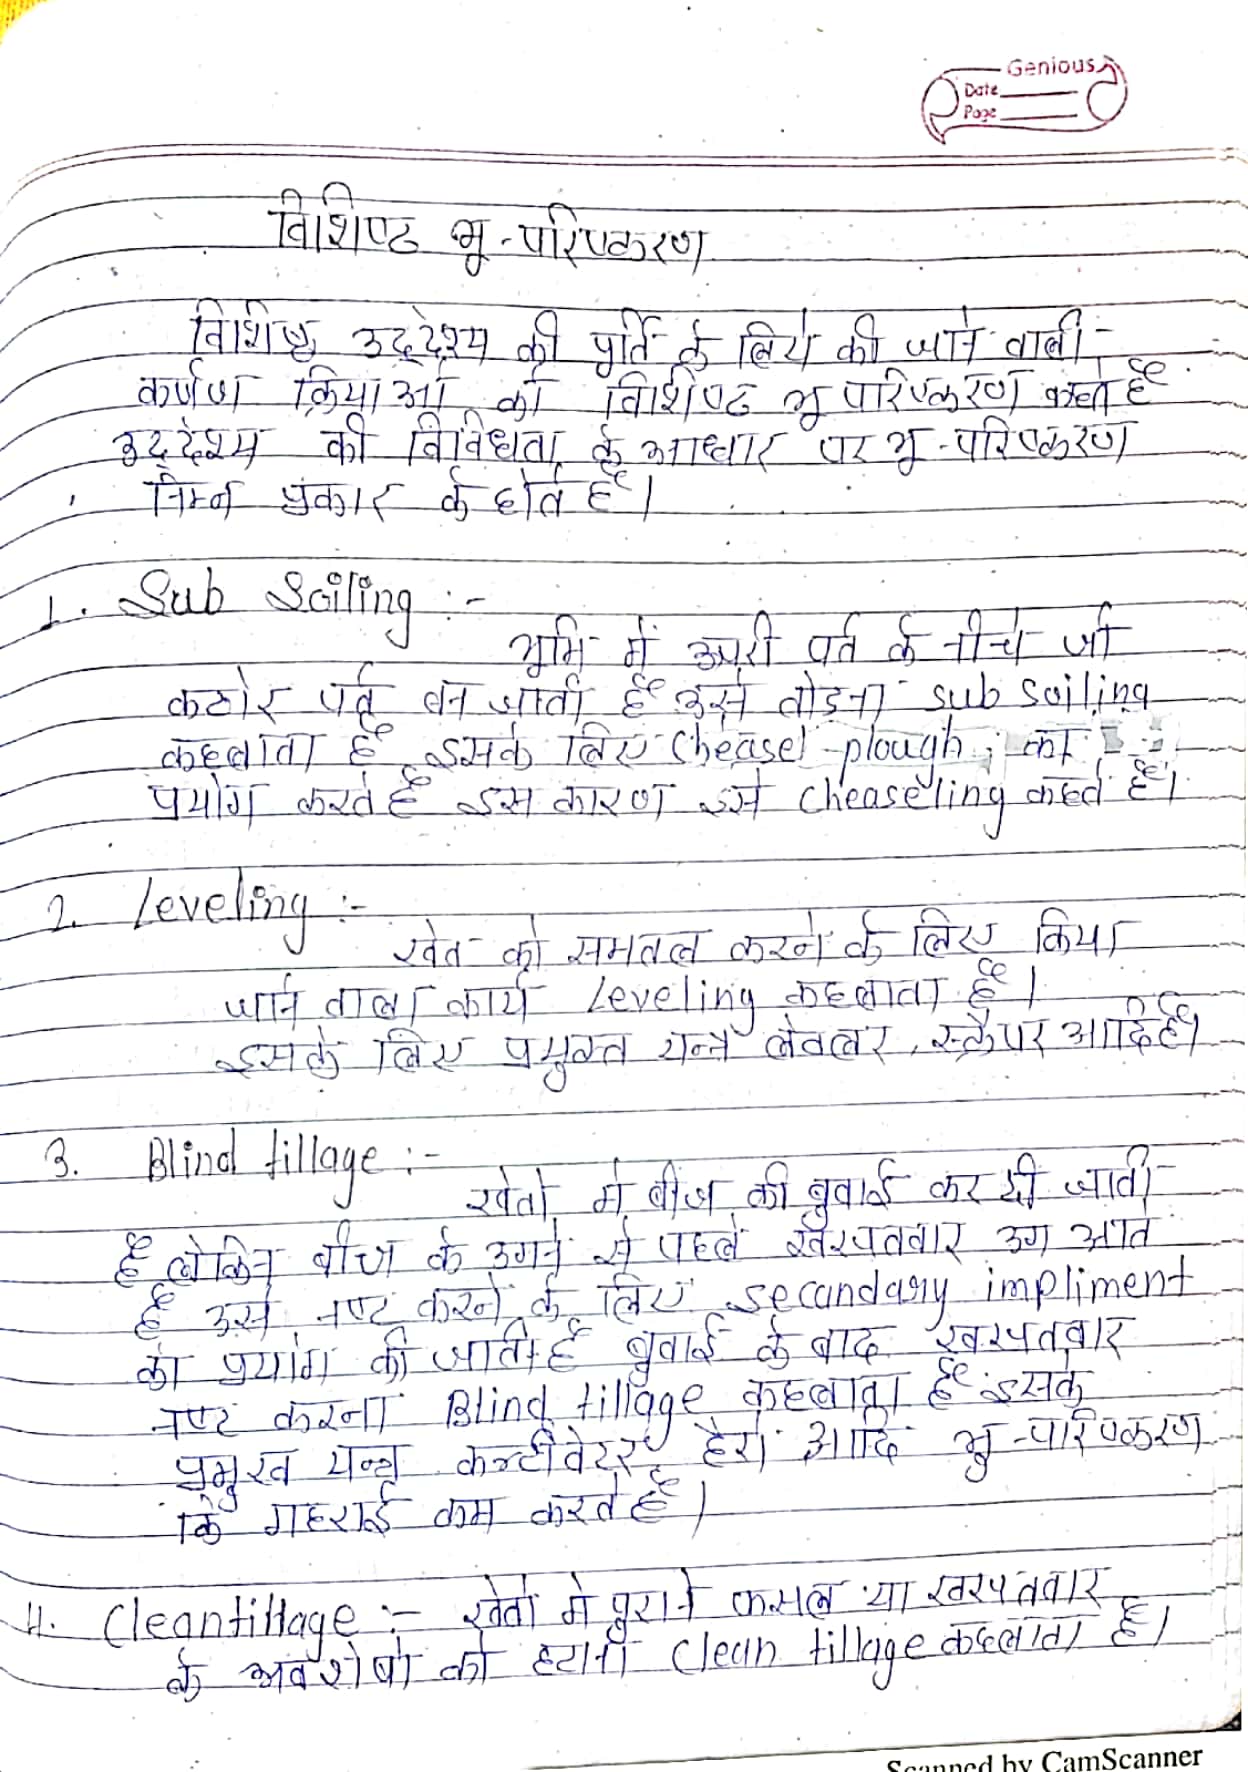 Genious
Date
Page
विशिष्ट भू-परिष्करण
विशिष्ट उद्देश्य की पूर्ति के लिये की जाने वाली
कर्षण क्रियाओं को विशिष्ट भू परिष्करण कहते हैं
उद्देश्य की विविधता के आधार पर भू-परिष्करण
निम्न प्रकार के होते हैं।
1. Sub Soiling :-
भूमि में ऊपरी पर्त के नीचे जो
कठोर पर्त बन जाती है उसे तोड़ना sub soiling
कहलाता है इसके लिए Cheasel plough, का
प्रयोग करते हैं इस कारण इसे Cheaseling कहते हैं।
2. Leveling :-
खेत को समतल करने के लिए किया
जाने वाला कार्य Leveling कहलाता है।
इसके लिए प्रयुक्त यन्त्र लेवलर, स्क्रैपर आदि है।
3. Blind tillage :-
खेतो में बीज की बुवाई कर दी जाती
है लेकिन बीज के उगने से पहले खरपतवार उग आते
है उसे नष्ट करने के लिए secandary impliment
का प्रयोग की जाती है बुवाई के बाद खरपतवार
नष्ट करना Blind tillage कहलाता है इसके
प्रमुख यन्त्र कल्टीवेटर, हैरो आदि भू-परिष्करण
कि गहराई कम करते है।
4. Clean tillage :- खेतो में पुराने फसल या खरपतवार
के अवशेषो को हटाना Clean tillage कहलाता है।
Scanned by CamScanner